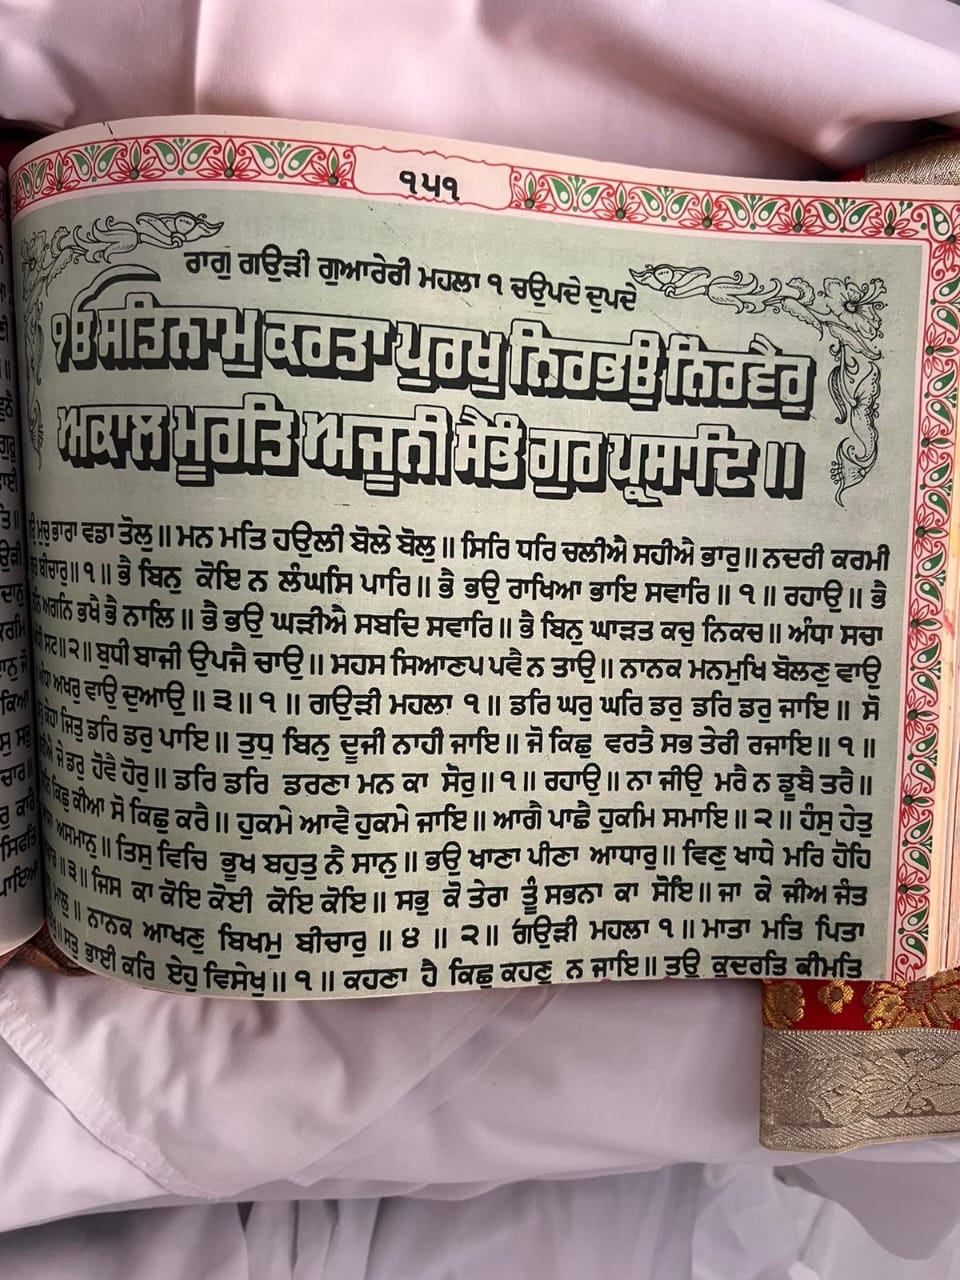 ੧੫੧
ਰਾਗੁ ਗਉੜੀ ਗੁਆਰੇਰੀ ਮਹਲਾ ੧ ਚਉਪਦੇ ਦੁਪਦੇ
ੴ ਸਤਿ ਨਾਮੁ ਕਰਤਾ ਪੁਰਖੁ ਨਿਰਭਉ ਨਿਰਵੈਰੁ
ਅਕਾਲ ਮੂਰਤਿ ਅਜੂਨੀ ਸੈਭੰ ਗੁਰ ਪ੍ਰਸਾਦਿ ॥
ਮੁਚੁ ਭਾਰਾ ਵਡਾ ਤੋਲੁ ॥ ਮਨ ਮਤਿ ਹਉਲੀ ਬੋਲੇ ਬੋਲੁ ॥ ਸਿਰਿ ਧਰਿ ਚਲੀਐ ਸਹੀਐ ਭਾਰੁ ॥ ਨਦਰੀ ਕਰਮੀ
ਬੀਚਾਰੁ ॥ ੧ ॥ ਭੈ ਬਿਨੁ ਕੋਇ ਨ ਲੰਘਸਿ ਪਾਰਿ ॥ ਭੈ ਭਉ ਰਾਖਿਆ ਭਾਇ ਸਵਾਰਿ ॥ ੧ ॥ ਰਹਾਉ ॥ ਭੈ
ਅਗਨਿ ਭਖੈ ਭੈ ਨਾਲਿ ॥ ਭੈ ਭਉ ਘੜੀਐ ਸਬਦਿ ਸਵਾਰਿ ॥ ਭੈ ਬਿਨੁ ਘਾੜਤ ਕਚੁ ਨਿਕਚ ॥ ਅੰਧਾ ਸਚਾ
ਸਟ ॥ ੨ ॥ ਬੁਧੀ ਬਾਜੀ ਉਪਜੈ ਚਾਉ ॥ ਸਹਸ ਸਿਆਣਪ ਪਵੈ ਨ ਤਾਉ ॥ ਨਾਨਕ ਮਨਮੁਖਿ ਬੋਲਣੁ ਵਾਉ
ਅੰਧਾ ਅਖਰੁ ਵਾਉ ਦੁਆਉ ॥ ੩ ॥ ੧ ॥ ਗਉੜੀ ਮਹਲਾ ੧ ॥ ਡਰਿ ਘਰੁ ਘਰਿ ਡਰੁ ਡਰਿ ਡਰੁ ਜਾਇ ॥ ਸੋ
ਕੇਹਾ ਜਿਤੁ ਡਰਿ ਡਰੁ ਪਾਇ ॥ ਤੁਧੁ ਬਿਨੁ ਦੂਜੀ ਨਾਹੀ ਜਾਇ ॥ ਜੋ ਕਿਛੁ ਵਰਤੈ ਸਭ ਤੇਰੀ ਰਜਾਇ ॥ ੧ ॥
ਜੇ ਡਰੁ ਹੋਵੈ ਹੋਰੁ ॥ ਡਰਿ ਡਰਿ ਡਰਣਾ ਮਨ ਕਾ ਸੋਰੁ ॥ ੧ ॥ ਰਹਾਉ ॥ ਨਾ ਜੀਉ ਮਰੈ ਨ ਡੂਬੈ ਤਰੈ ॥
ਕਿਛੁ ਕੀਆ ਸੋ ਕਿਛੁ ਕਰੈ ॥ ਹੁਕਮੇ ਆਵੈ ਹੁਕਮੇ ਜਾਇ ॥ ਆਗੈ ਪਾਛੈ ਹੁਕਮਿ ਸਮਾਇ ॥ ੨ ॥ ਹੰਸੁ ਹੇਤੁ
ਅਸਮਾਨੁ ॥ ਤਿਸੁ ਵਿਚਿ ਭੂਖ ਬਹੁਤੁ ਨੈ ਸਾਨੁ ॥ ਭਉ ਖਾਣਾ ਪੀਣਾ ਆਧਾਰੁ ॥ ਵਿਣੁ ਖਾਧੇ ਮਰਿ ਹੋਹਿ
॥ ੩ ॥ ਜਿਸ ਕਾ ਕੋਇ ਕੋਈ ਕੋਇ ਕੋਇ ॥ ਸਭੁ ਕੋ ਤੇਰਾ ਤੂੰ ਸਭਨਾ ਕਾ ਸੋਇ ॥ ਜਾ ਕੇ ਜੀਅ ਜੰਤ
ਮਾਲੁ ॥ ਨਾਨਕ ਆਖਣੁ ਬਿਖਮੁ ਬੀਚਾਰੁ ॥ ੪ ॥ ੨ ॥ ਗਉੜੀ ਮਹਲਾ ੧ ॥ ਮਾਤਾ ਮਤਿ ਪਿਤਾ
॥ ਸਤੁ ਭਾਈ ਕਰਿ ਏਹੁ ਵਿਸੇਖੁ ॥ ੧ ॥ ਕਹਣਾ ਹੈ ਕਿਛੁ ਕਹਣੁ ਨ ਜਾਇ ॥ ਤਉ ਕੁਦਰਤਿ ਕੀਮਤਿ